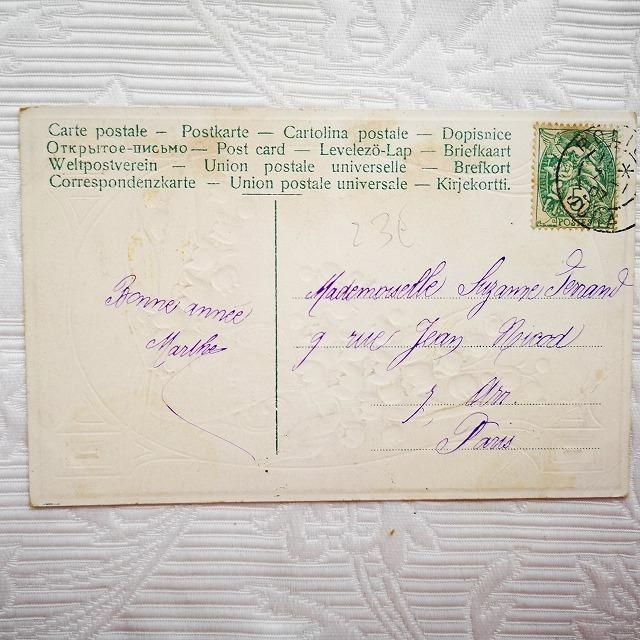 Carte postale — Postkarte — Cartolina postale — Dopisnice
Открытое-письмо — Post card — Levelezö-Lap — Briefkaart
Weltpostverein — Union postale universelle — Brefkort
Correspondenzkarte — Union postale universale — Kirjekortti.
POSTES
23€
Bonne année
Marthe
Mademoiselle Suzanne Ferrand
9 rue Jean Nicod
7 Arr.
Paris